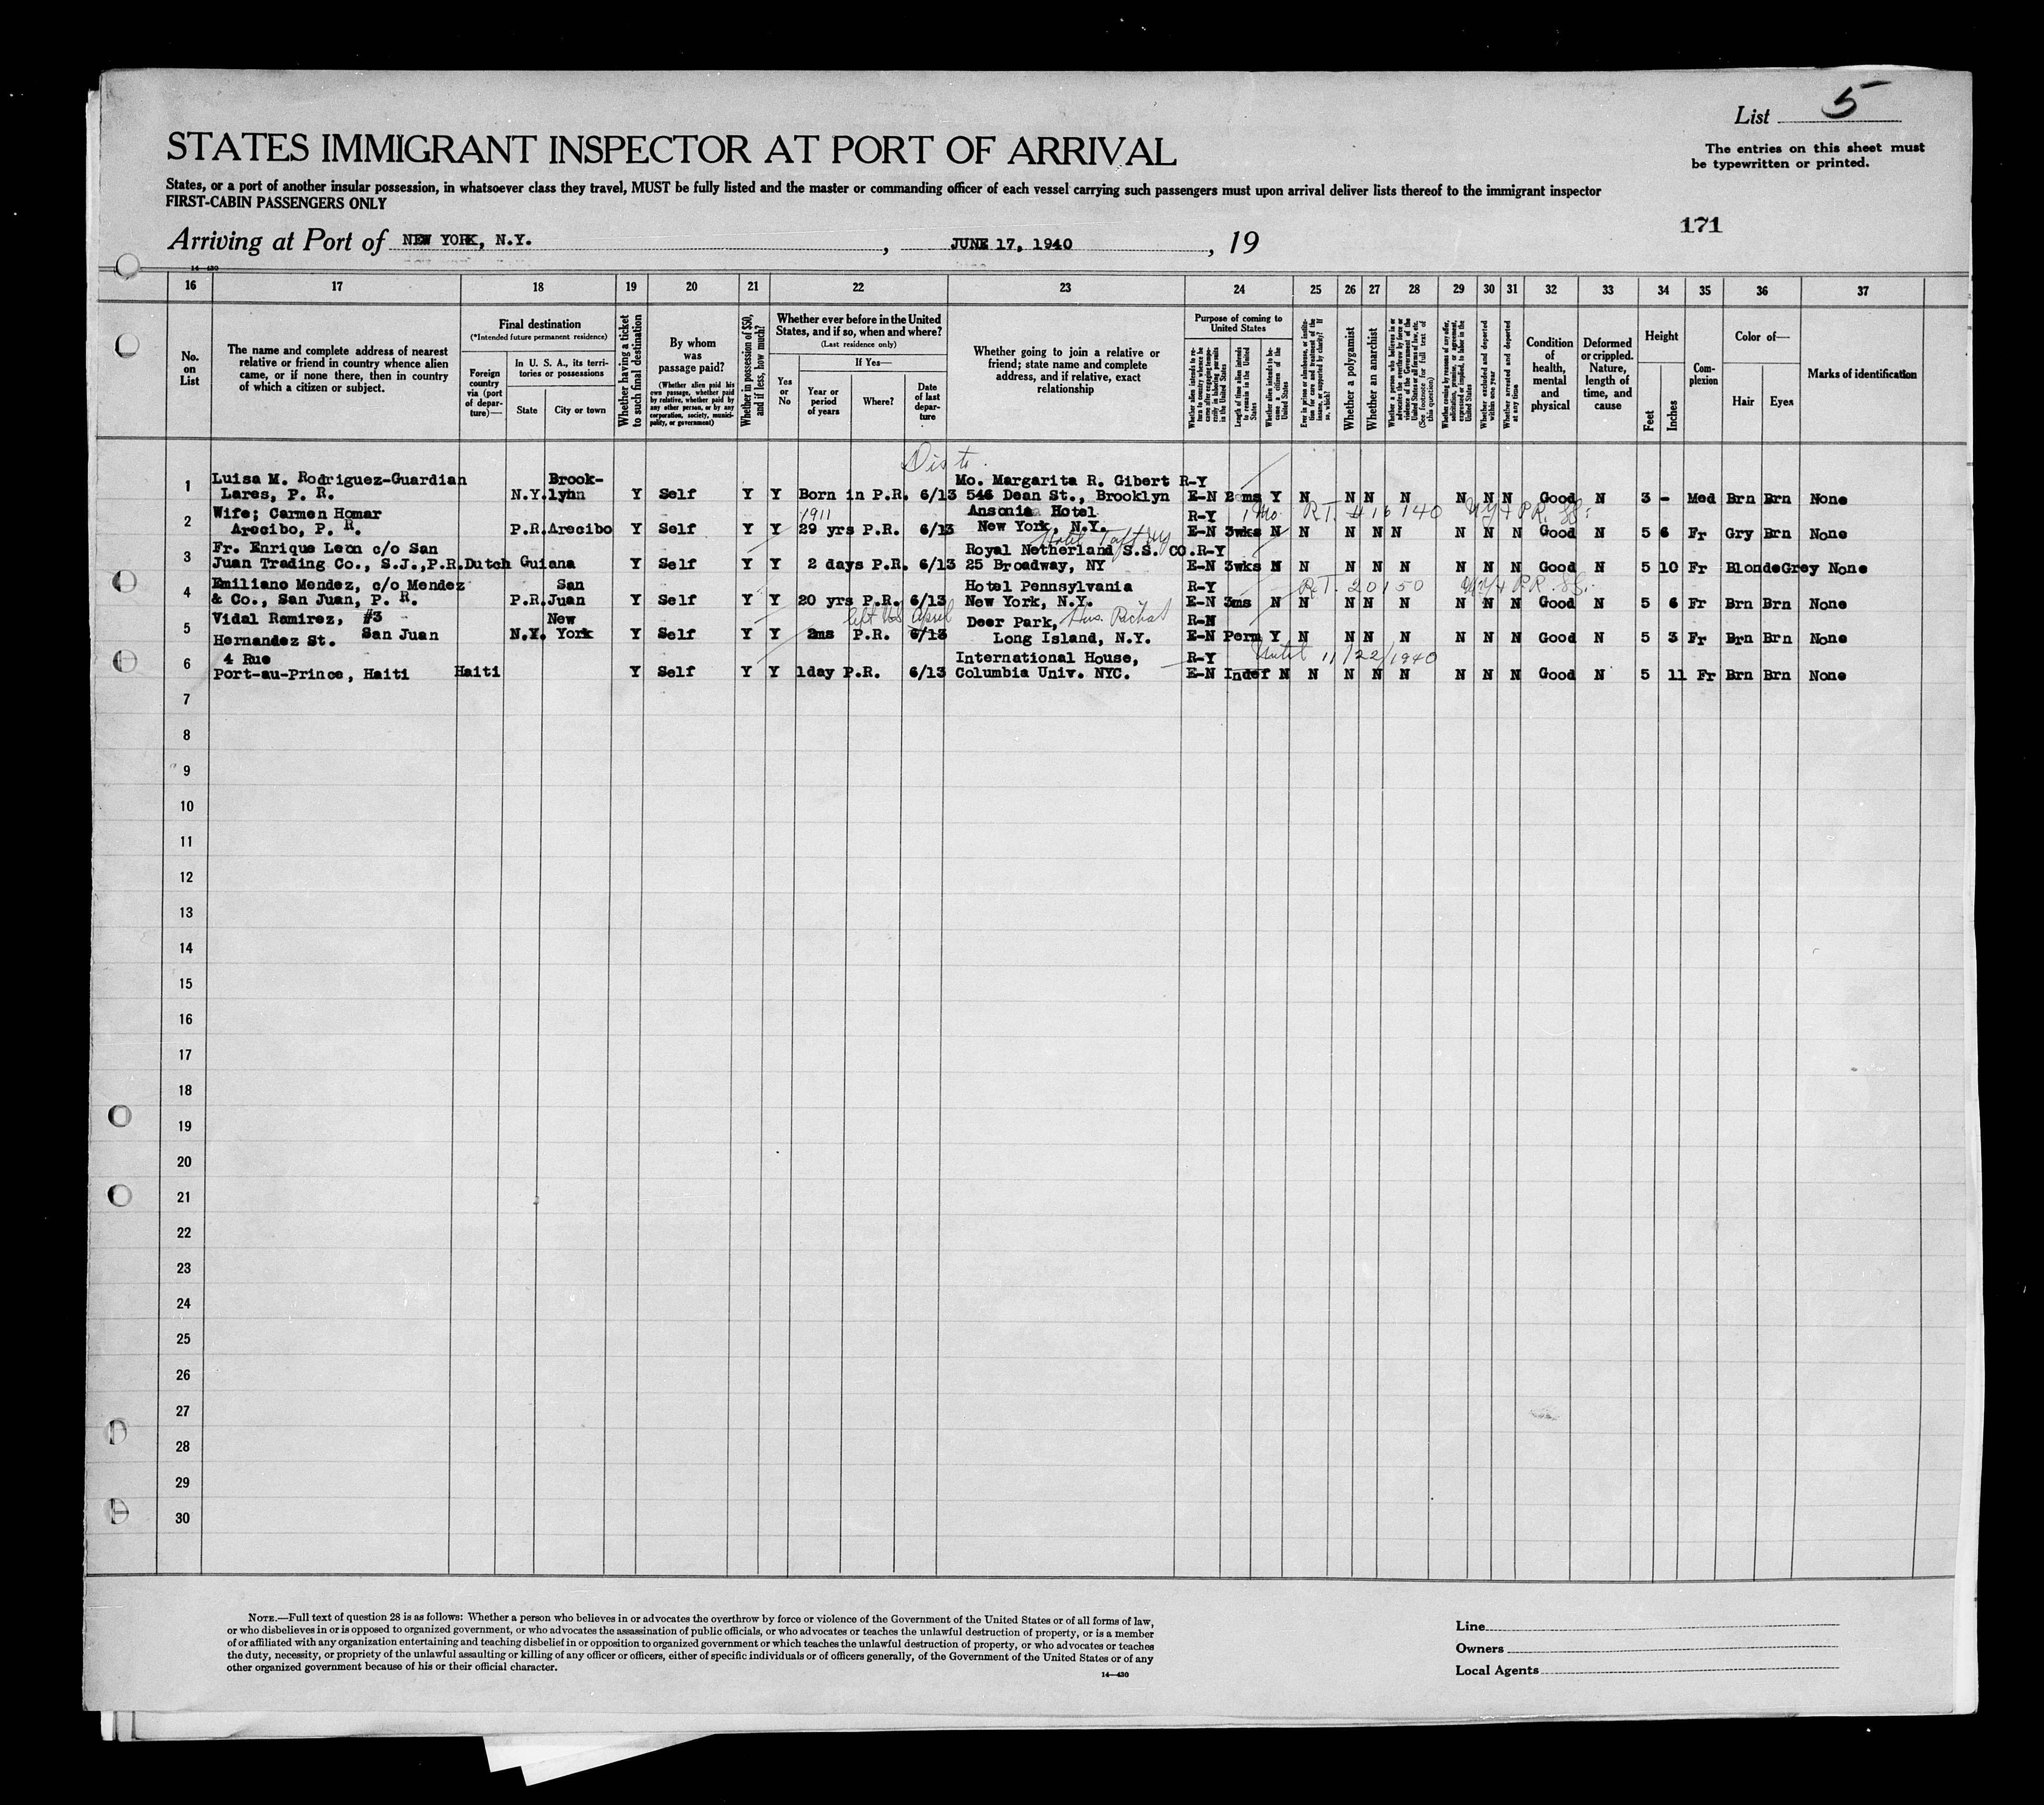 List 5
STATES IMMIGRANT INSPECTOR AT PORT OF ARRIVAL
The entries on this sheet must
be typewritten or printed.
States, or a port of another insular possession, in whatsoever class they travel, MUST be fully listed and the master or commanding officer of each vessel carrying such passengers must upon arrival deliver lists thereof to the immigrant inspector
FIRST-CABIN PASSENGERS ONLY
171
Arriving at Port of NEW YORK, N.Y. , JUNE 17, 1940 , 19
14-430
16 17 18 19 20 21 22 23 24 25 26 27 28 29 30 31 32 33 34 35 36 37
No. on List
The name and complete address of nearest
relative or friend in country whence alien
came, or if none there, then in country
of which a citizen or subject.
Final destination
(*Intended future permanent residence)
Foreign country via (port of departure)—
In U. S. A., its territories or possessions
State
City or town
Whether having a ticket to such final destination
By whom was passage paid?
(Whether alien paid his own passage, whether paid by relative, whether paid by any other person, or by any corporation, society, municipality, or government)
Whether in possession of $50, and if less, how much?
Whether ever before in the United States, and if so, when and where?
(Last residence only)
Yes or No
If Yes—
Year or period of years
Where?
Date of last departure
Whether going to join a relative or
friend; state name and complete
address, and if relative, exact
relationship
Purpose of coming to United States
Length of time alien intends to remain in the United States
Whether alien intends to become a citizen of the United States
Whether a polygamist
Whether an anarchist
Whether excluded and deported within one year
Whether arrested and deported at any time
Condition of health, mental and physical
Deformed or crippled. Nature, length of time, and cause
Height
Feet
Inches
Complexion
Color of—
Hair
Eyes
Marks of identification
Dis to
Luisa M. Rodriguez-Guardian Brook- Mo. Margarita R. Gibert R-Y
1 Lares, P. R. N.Y. lynn Y Self Y Y Born in P.R. 6/13 546 Dean St., Brooklyn E-N 2 ms Y N N N N N N N Good N 3 - Med Brn Brn None
Wife; Carmen Homar 1911 Ansonia Hotel R-Y 1 Mo. R.T. 416140 NY + P.R. SS.
2 Arecibo, P. R. P.R. Arecibo Y Self Y Y 29 yrs P.R. 6/13 New York, N.Y. E-N 3wks N N N N N N N N Good N 5 6 Fr Gry Brn None
Hotel Taft NY
Fr. Enrique Leon c/o San Royal Netherland S.S. CO. R-Y
3 Juan Trading Co., S.J.,P.R. Dutch Guiana Y Self Y Y 2 days P.R. 6/13 25 Broadway, NY E-N 3wks N N N N N N N N Good N 5 10 Fr Blonde Grey None
Emiliano Mendez, c/o Mendez San Hotel Pennsylvania R-Y R.T. 20150 NY + P.R. SS.
4 & Co., San Juan, P. R. P.R. Juan Y Self Y Y 20 yrs P.R. 6/13 New York, N.Y. E-N 3ms N N N N N N N N Good N 5 6 Fr Brn Brn None
left US April
Vidal Ramirez, #3 New Deer Park, R-N
5 Hernandez St. San Juan N.Y. York Y Self Y Y 2ms P.R. 6/13 Long Island, N.Y. E-N Perm Y N N N N N N N Good N 5 3 Fr Brn Brn None
4 Rue International House, R-Y Until 11/22/1940
6 Port-au-Prince, Haiti Haiti Y Self Y Y 1day P.R. 6/13 Columbia Univ. NYC. E-N Indef N N N N N N N N Good N 5 11 Fr Brn Brn None
7
8
9
10
11
12
13
14
15
16
17
18
19
20
21
22
23
24
25
26
27
28
29
30
NOTE.—Full text of question 28 is as follows: Whether a person who believes in or advocates the overthrow by force or violence of the Government of the United States or of all forms of law,
or who disbelieves in or is opposed to organized government, or who advocates the assassination of public officials, or who advocates or teaches the unlawful destruction of property, or is a member
of or affiliated with any organization entertaining and teaching disbelief in or opposition to organized government or which teaches the unlawful destruction of property, or who advocates or teaches
the duty, necessity, or propriety of the unlawful assaulting or killing of any officer or officers, either of specific individuals or of officers generally, of the Government of the United States or of any
other organized government because of his or their official character.
14-430
Line
Owners
Local Agents